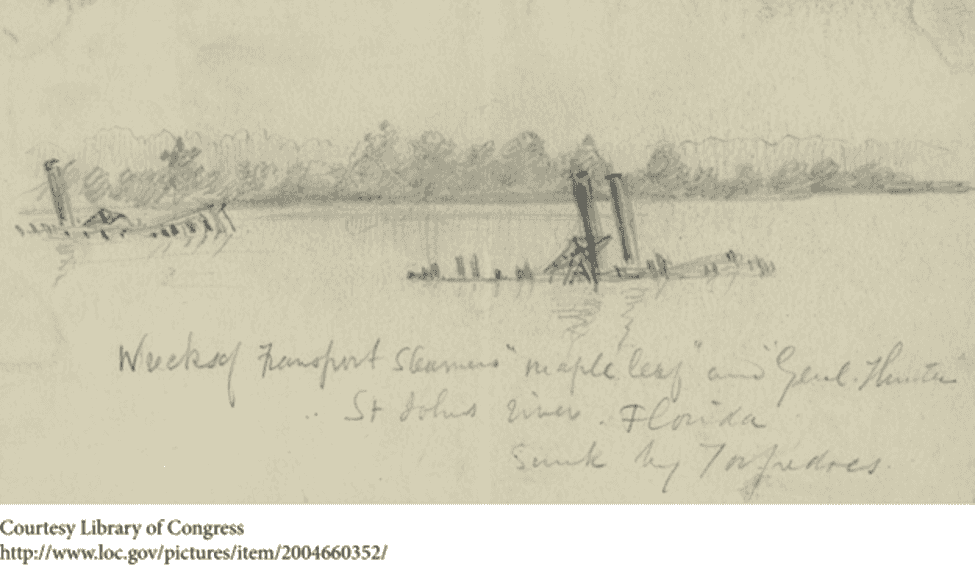 Wrecks of Transport Steamers "maple leaf" and "Genl. Hunter
St Johns river. Florida
Sunk by Torpedoes.
Courtesy Library of Congress
http://www.loc.gov/pictures/item/2004660352/